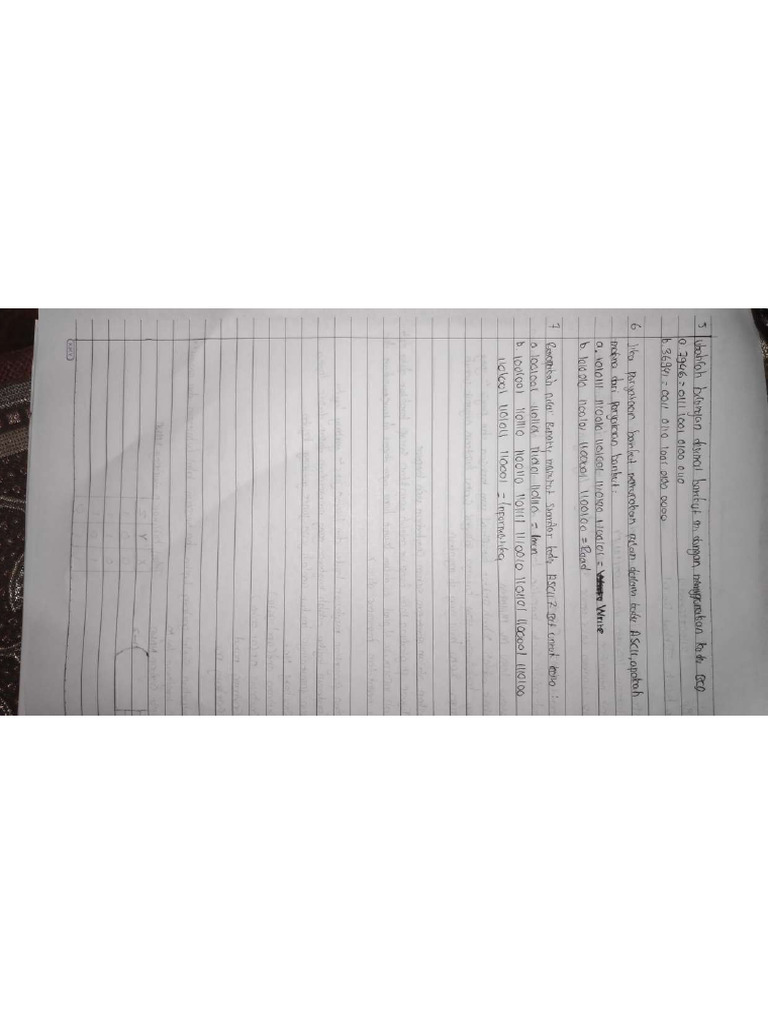 5 Ubahlah bilangan desimal berikut ini dengan menggunakan kode BCD
a. 7946 = 0111 1001 0100 0110
b. 36941 = 0011 0110 1001 0100 0000
6 Jika pernyataan berikut merupakan pesan dalam kode ASCII, apakah
makna dari pernyataan berikut:
a. 1010111 1110010 1101001 1110100 1100101 = Write
b. 1010010 1100101 1100001 1100100 = Read
7 nilai menurut standar kode ASCII 7 bit untuk :
a. 1001001 1101101 1110101 1101110 = Imun
b. 1001001 1101110 1100110 1101111 1110010 1101101 1100001 1110100
1101001 1101011 110001 = Informatika